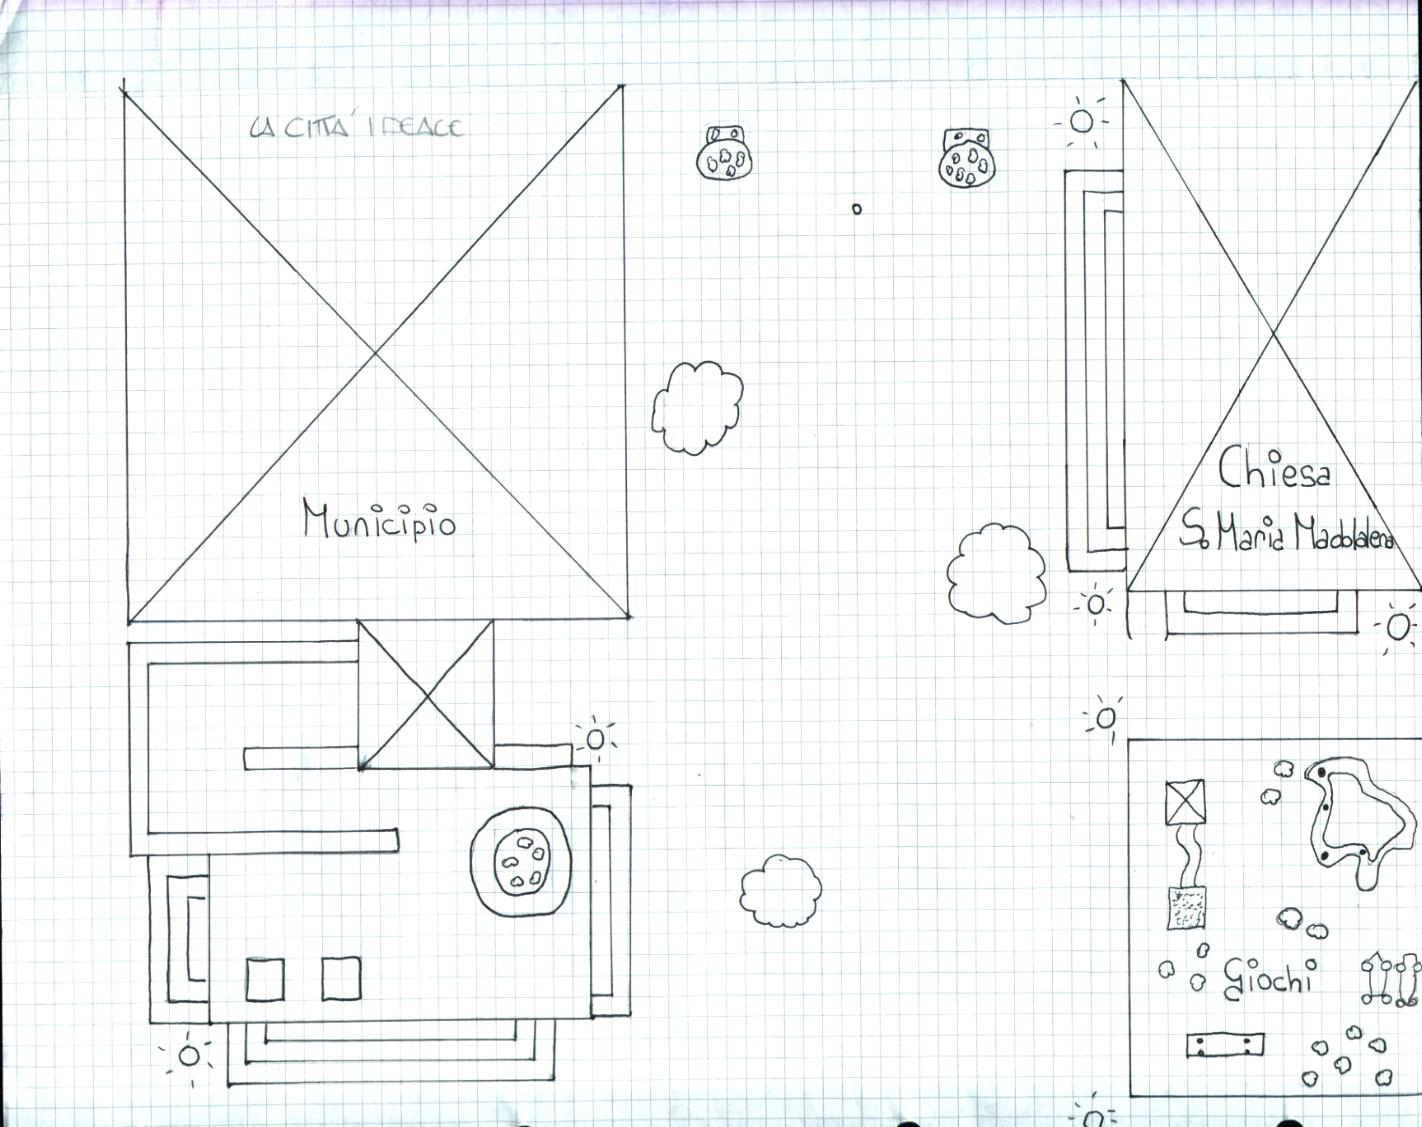 LA CITTA' IDEALE
Municipio
Chiesa
S. Maria Maddalena
Giochi